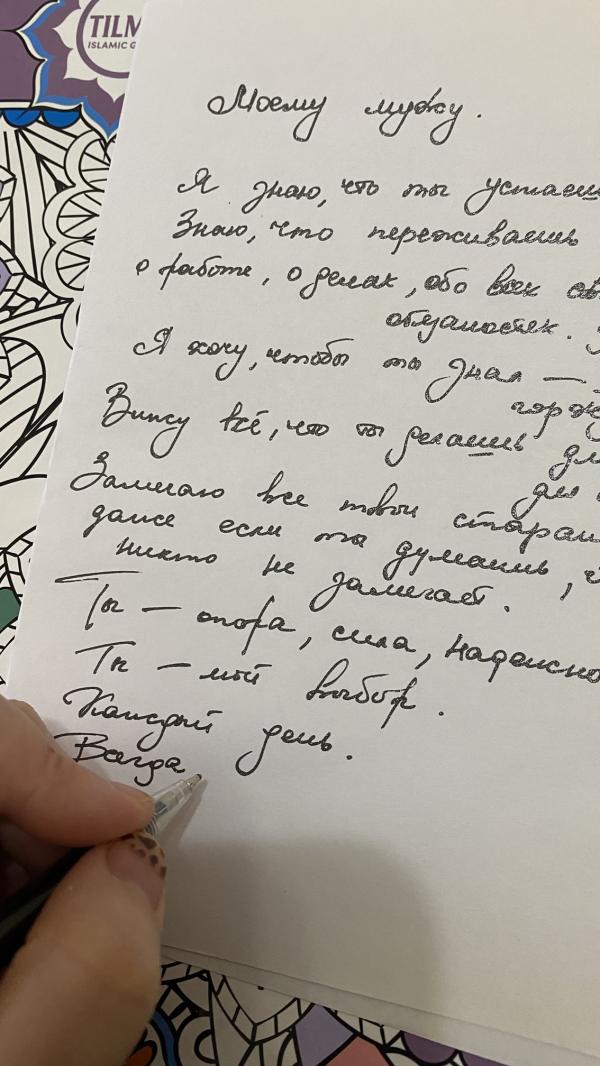 TILM
ISLAMIC G
Моему мужу.
Я знаю, что ты устаеш
Знаю, что переживаешь
о работе, о делах, обо всех св
обязаностях.
Я хочу, чтобы ты знал —
горж
Вижу всё, что ты делаешь дл
дл
Замечаю все твои старан
даже если ты думаешь, ч
никто не замечает.
Ты — опора, сила, надежно
Ты — мой выбор.
Каждый день.
Всегда